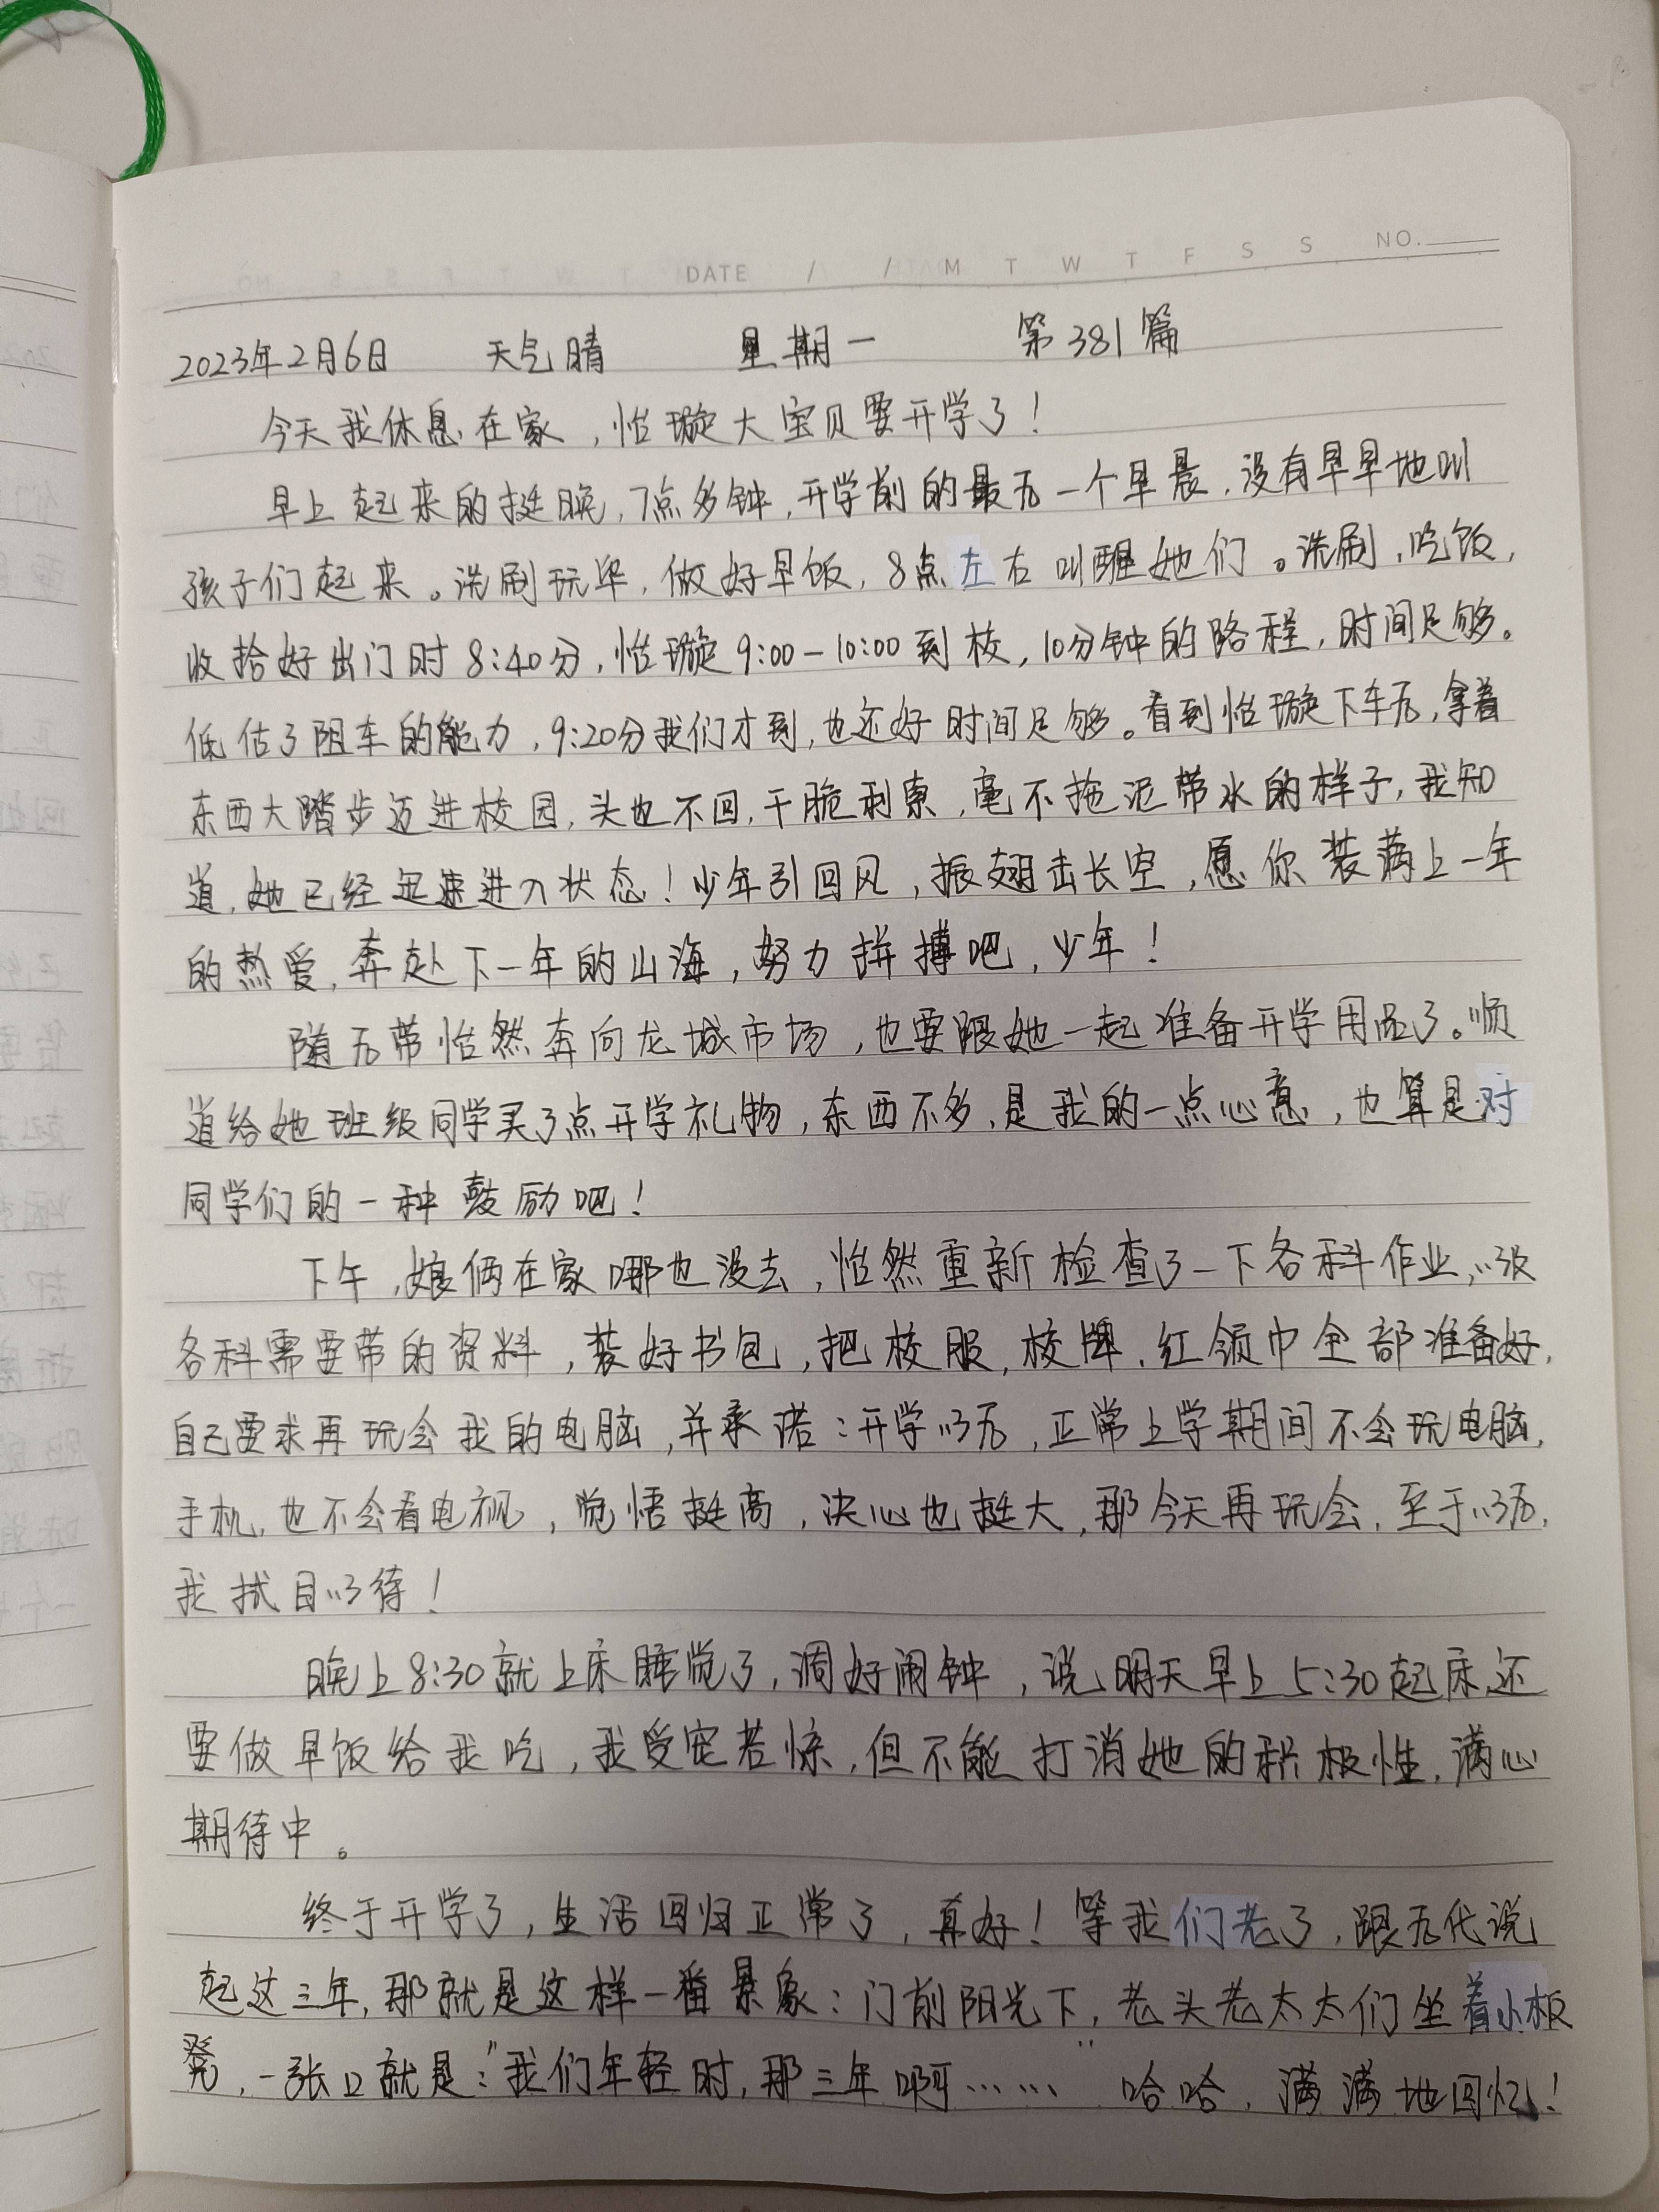 DATE / / M T W T F S S NO.
2023年2月6日 天气晴 星期一 第381篇
今天我休息在家，怡璇大宝贝要开学了！
早上起来的挺晚，7点多钟，开学前的最后一个早晨，没有早早地叫
孩子们起来。洗刷完毕，做好早饭，8点左右叫醒她们。洗刷，吃饭，
收拾好出门时8:40分，怡璇9:00-10:00到校，10分钟的路程，时间足够。
低估了阻车的能力，9:20分我们才到，也还好时间足够。看到怡璇下车后，拿着
东西大踏步迈进校园，头也不回，干脆利索，毫不拖泥带水的样子，我知
道，她已经迅速进入状态！少年引回风，振翅击长空，愿你装满上一年
的热爱，奔赴下一年的山海，努力拼搏吧，少年！
随后带怡然奔向龙城市场，也要跟她一起准备开学用品了。顺
道给她班级同学买了点开学礼物，东西不多，是我的一点心意，也算是对
同学们的一种鼓励吧！
下午，娘俩在家哪也没去，怡然重新检查了一下各科作业，以及
各科需要带的资料，装好书包，把校服，校牌，红领巾全部准备好，
自己要求再玩会我的电脑，并承诺：开学以后，正常上学期间不会玩电脑，
手机，也不会看电视，觉悟挺高，决心也挺大，那今天再玩会，至于以后，
我拭目以待！
晚上8:30就上床睡觉了，调好闹钟，说明天早上5:30起床还
要做早饭给我吃，我受宠若惊，但不能打消她的积极性，满心
期待中。
终于开学了，生活回归正常了，真好！等我们老了，跟后代说
起这三年，那就是这样一番景象：门前阳光下，老头老太太们坐着小板
凳，一张口就是：“我们年轻时，那三年啊……”哈哈，满满地回忆！